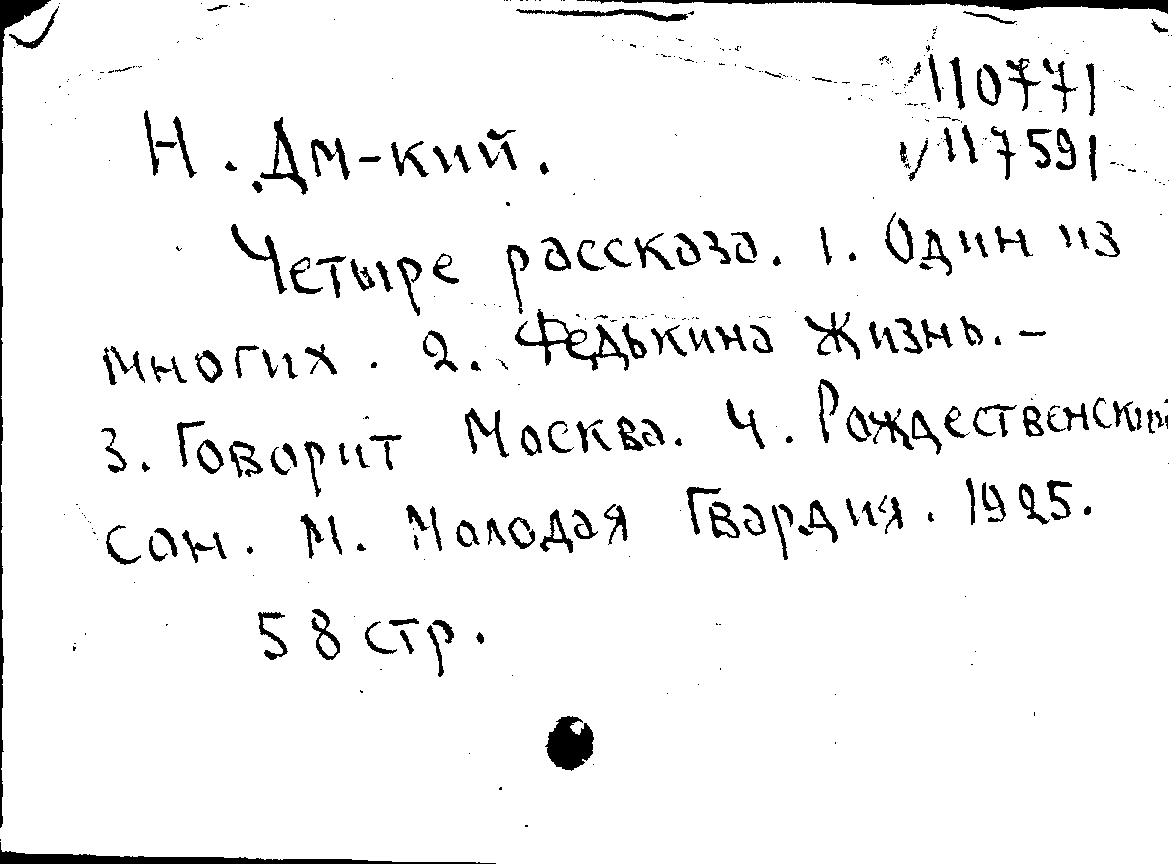 110771
Н. Дм-кий.
v117591
Четыре рассказа. 1. Один из
многих. 2. Федькина жизнь. –
3. Говорит Москва. 4. Рождественский
сон. М. Молодая Гвардия. 1925.
58 стр.